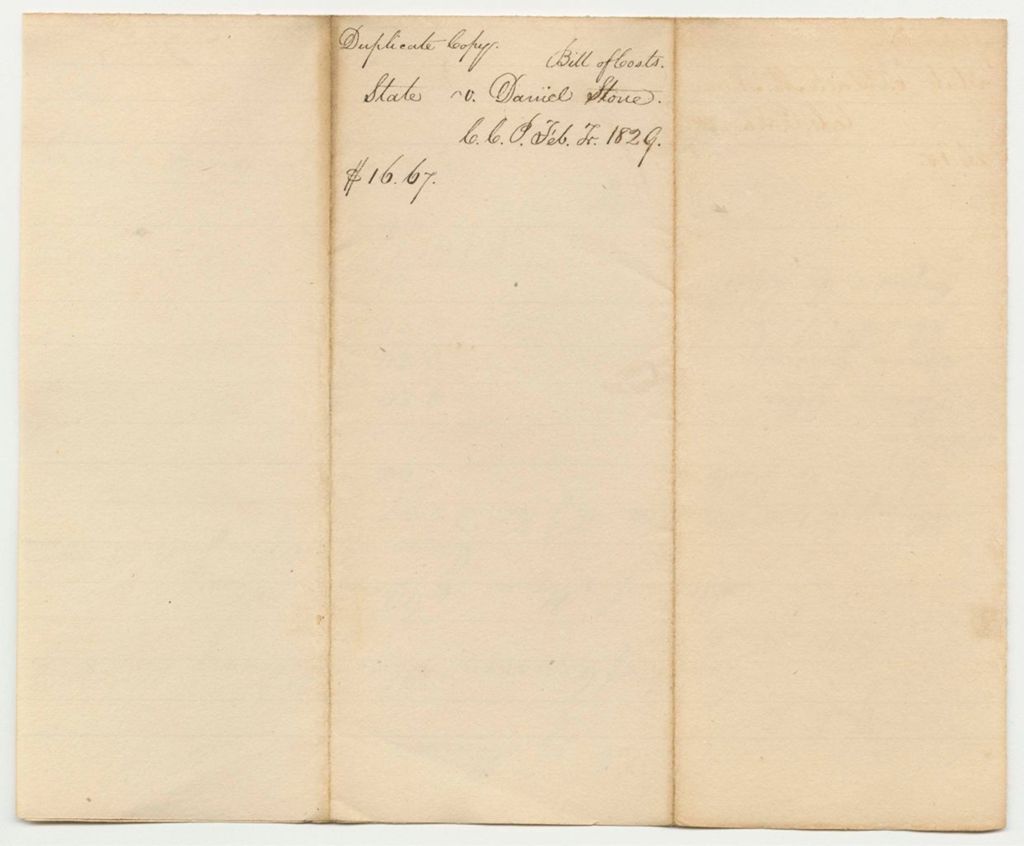 Duplicate Copy.
Bill of Costs.
State v. Daniel Stone.
C. C. P. Feb. Tr. 1829.
$16.67.